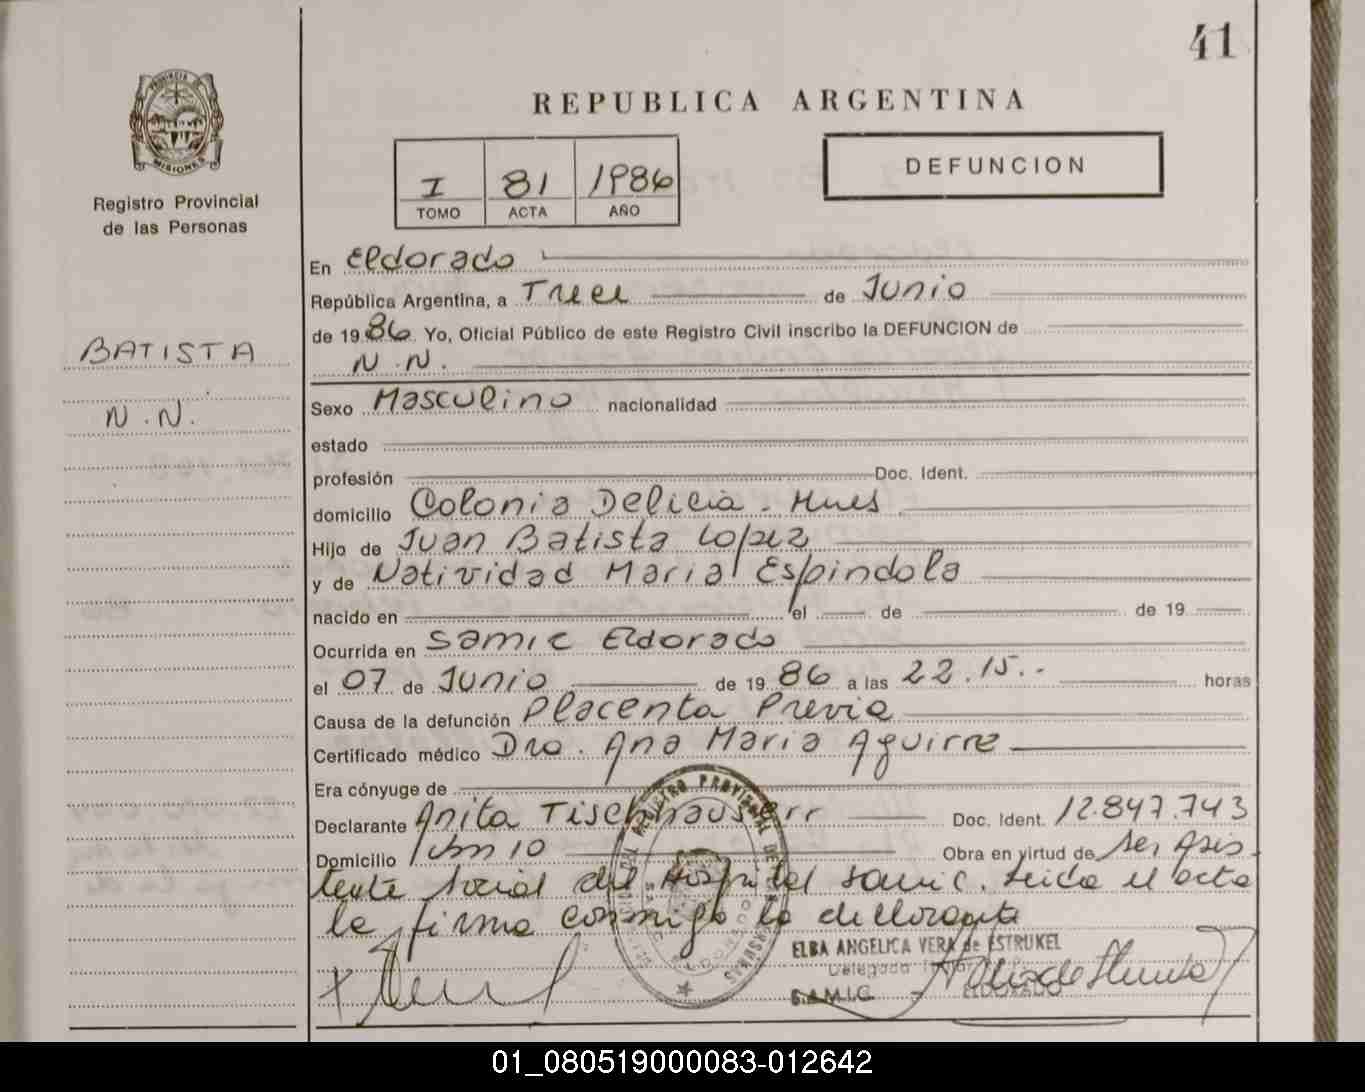 41
PROVINCIA DE
MISIONES
Registro Provincial
de las Personas
REPUBLICA ARGENTINA
I 81 1986
TOMO ACTA AÑO
DEFUNCION
BATISTA
N.N.
En Eldorado
República Argentina, a Trece de Junio
de 1986. Yo, Oficial Público de este Registro Civil inscribo la DEFUNCION de
N.N.
Sexo Masculino nacionalidad
estado
profesión Doc. Ident.
domicilio Colonia Delicia - Mnes
Hijo de Juan Batista Lopez
y de Natividad Maria Espindola
nacido en el de de 19
Ocurrida en Samic Eldorado
el 07 de Junio de 1986 a las 22.15.- horas
Causa de la defunción Placenta Previa
Certificado médico Dra. Ana Maria Aguirre
Era cónyuge de
Declarante Anita Tischhauserr Doc. Ident. 12.847.743
Domicilio Obra en virtud de ser Asis
tente social del Hospital Samic. Leida el acta
la firma conmigo la declarante
REGISTRO PROVINCIAL DE LAS PERSONAS
ELBA ANGELICA VERA de ESTRUKEL
Delegada
S.A.M.I.C. - ELDORADO
01_080519000083-012642